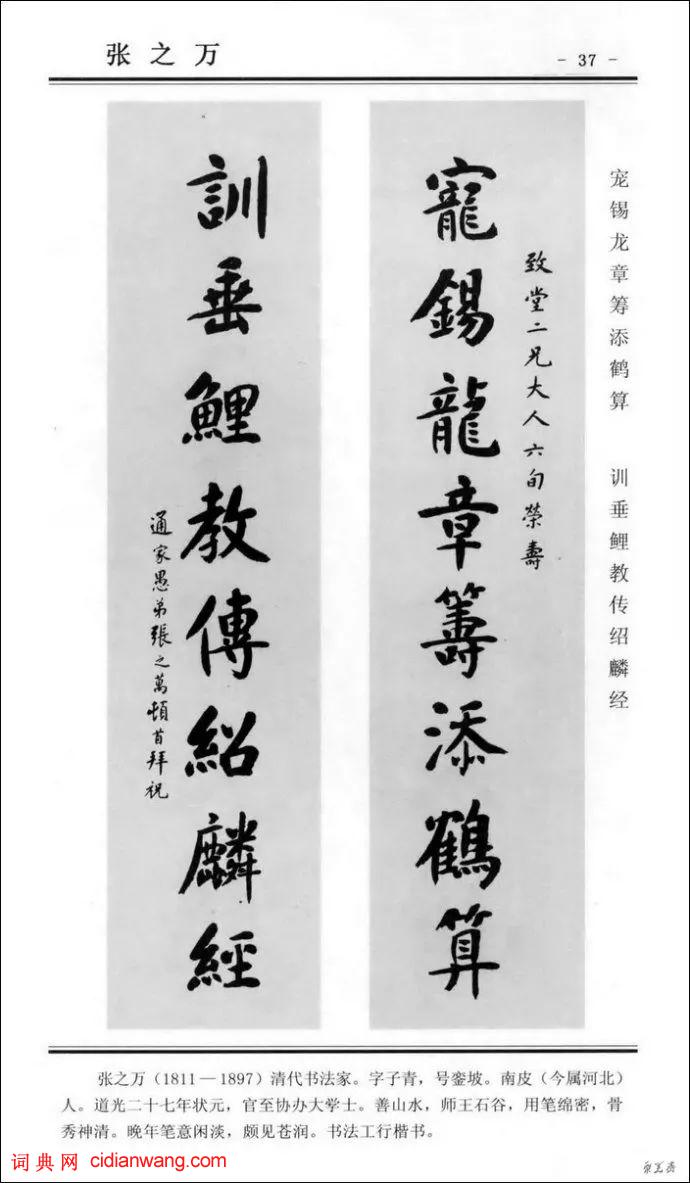 张之万
- 37 -
宠锡龙章筹添鹤算 训垂鲤教传绍麟经
致堂二兄大人六旬榮壽
寵錫龍章籌添鶴算
訓垂鯉教傳紹麟經
通家愚弟張之萬頓首拜祝
张之万（1811—1897）清代书法家。字子青，号銮坡。南皮（今属河北）
人。道光二十七年状元，官至协办大学士。善山水，师王石谷，用笔绵密，骨
秀神清。晚年笔意闲淡，颇见苍润。书法工行楷书。
词典网 cidianwang.com